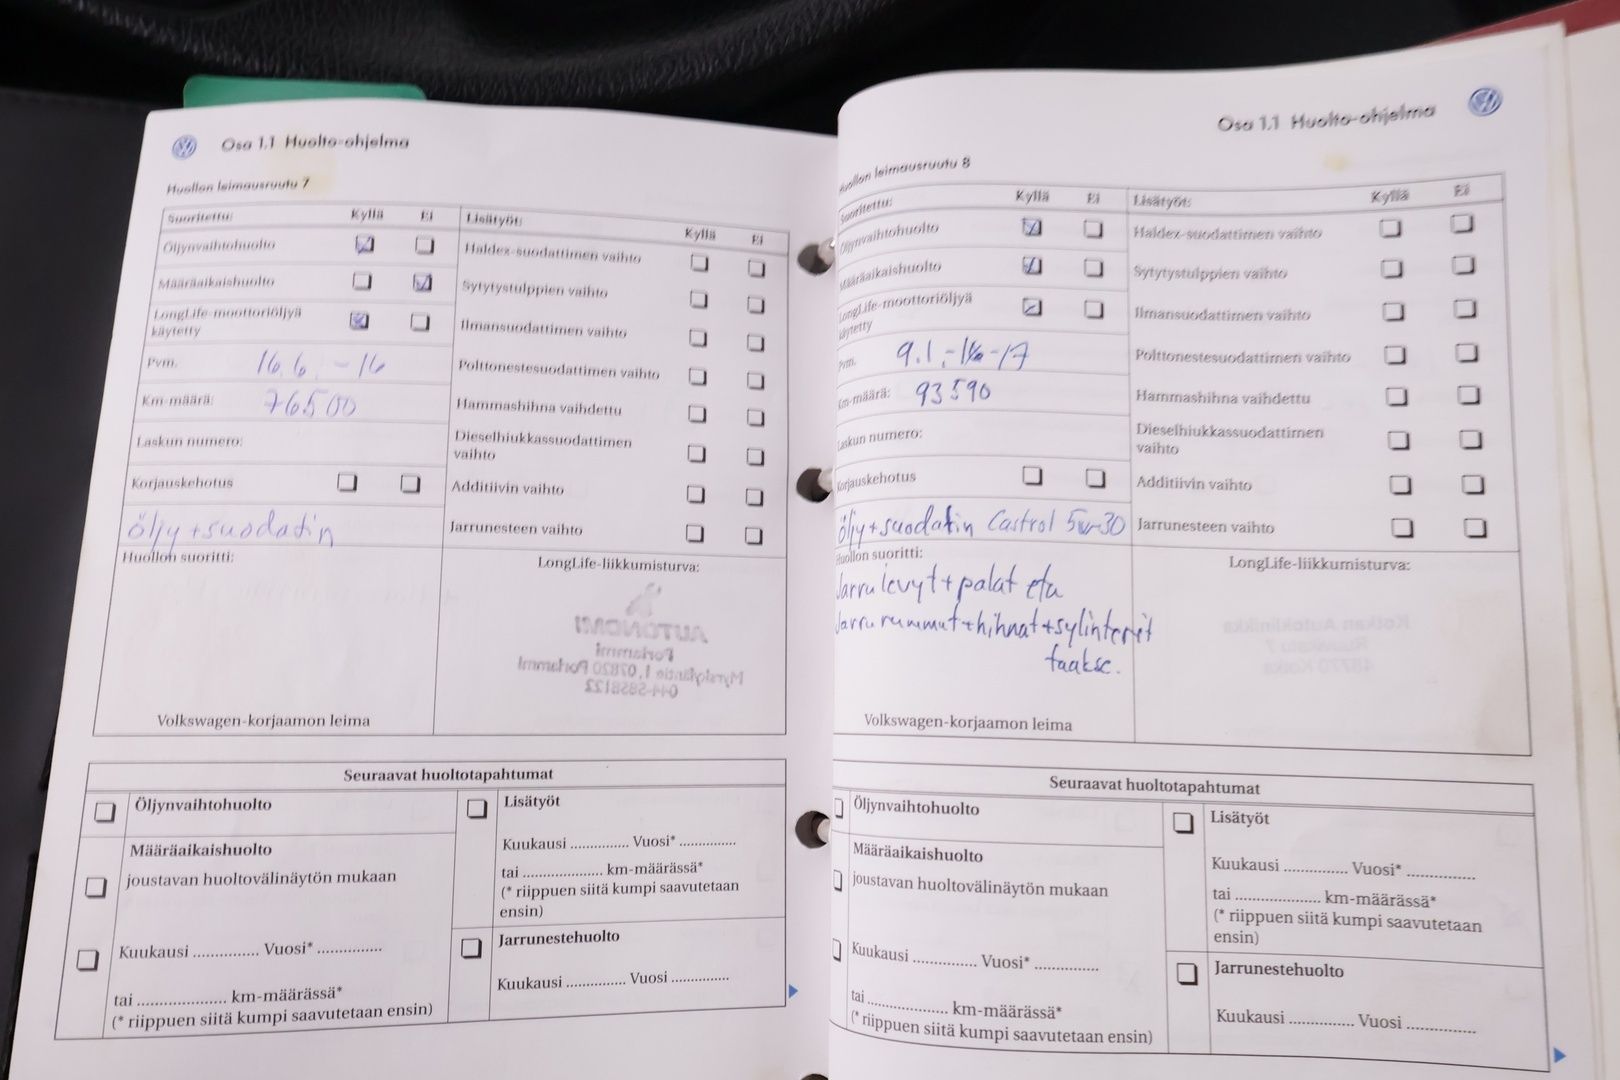 Osa 1.1 Huolto-ohjelma
Huollon leimausruutu 7
Suoritettu: Kyllä Ei
Öljynvaihtohuolto
Määräaikaishuolto
LongLife-moottoriöljyä
käytetty
Pvm. 16.6.-16
Km-määrä: 76500
Laskun numero:
Korjauskehotus
öljy+suodatin
Huollon suoritti:
Volkswagen-korjaamon leima
Lisätyöt: Kyllä Ei
Haldex-suodattimen vaihto
Sytytystulppien vaihto
Ilmansuodattimen vaihto
Polttonestesuodattimen vaihto
Hammashihna vaihdettu
Dieselhiukkassuodattimen
vaihto
Additiivin vaihto
Jarrunesteen vaihto
LongLife-liikkumisturva:
AUTONOMI
Porlammi
Myrskyläntie 1, 07820 Porlammi
044-5858122
Seuraavat huoltotapahtumat
Öljynvaihtohuolto
Määräaikaishuolto
joustavan huoltovälinäytön mukaan
Kuukausi .............. Vuosi* ..............
tai .................... km-määrässä*
(* riippuen siitä kumpi saavutetaan ensin)
Lisätyöt
Kuukausi .............. Vuosi* ..............
tai .................... km-määrässä*
(* riippuen siitä kumpi saavutetaan
ensin)
Jarrunestehuolto
Kuukausi .............. Vuosi ..............
Osa 1.1 Huolto-ohjelma
Huollon leimausruutu 8
Suoritettu: Kyllä Ei
Öljynvaihtohuolto
Määräaikaishuolto
LongLife-moottoriöljyä
käytetty
Pvm. 9.1.-17
Km-määrä: 93590
Laskun numero:
Korjauskehotus
öljy+suodatin Castrol 5w-30
Huollon suoritti:
Jarrulevyt+palat eta
Jarrurummut+hihnat+sylinterit
taakse.
Volkswagen-korjaamon leima
Lisätyöt: Kyllä Ei
Haldex-suodattimen vaihto
Sytytystulppien vaihto
Ilmansuodattimen vaihto
Polttonestesuodattimen vaihto
Hammashihna vaihdettu
Dieselhiukkassuodattimen
vaihto
Additiivin vaihto
Jarrunesteen vaihto
LongLife-liikkumisturva:
Kotkan Autoklinikka
48770 Kotka
Seuraavat huoltotapahtumat
Öljynvaihtohuolto
Määräaikaishuolto
joustavan huoltovälinäytön mukaan
Kuukausi .............. Vuosi* ..............
tai .................... km-määrässä*
(* riippuen siitä kumpi saavutetaan ensin)
Lisätyöt
Kuukausi .............. Vuosi* ..............
tai .................... km-määrässä*
(* riippuen siitä kumpi saavutetaan
ensin)
Jarrunestehuolto
Kuukausi .............. Vuosi ..............